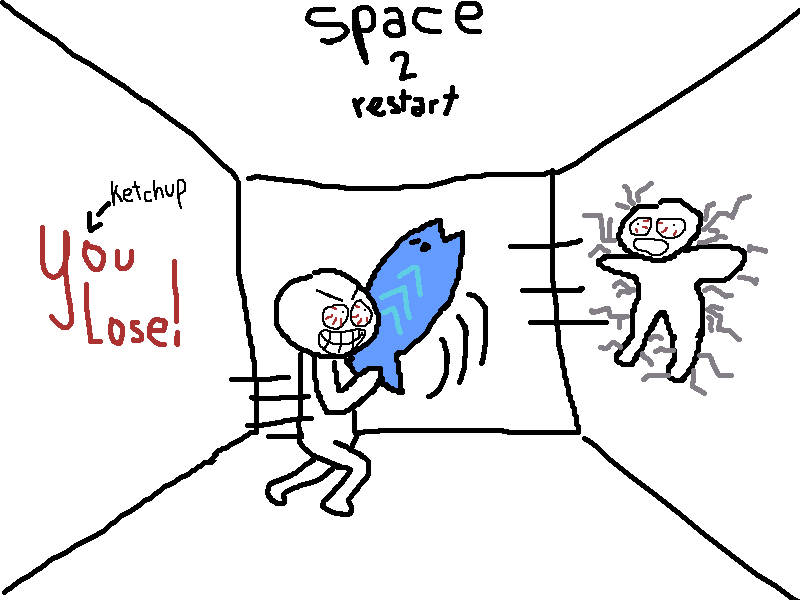 space
2
restart
Ketchup
You
Lose!